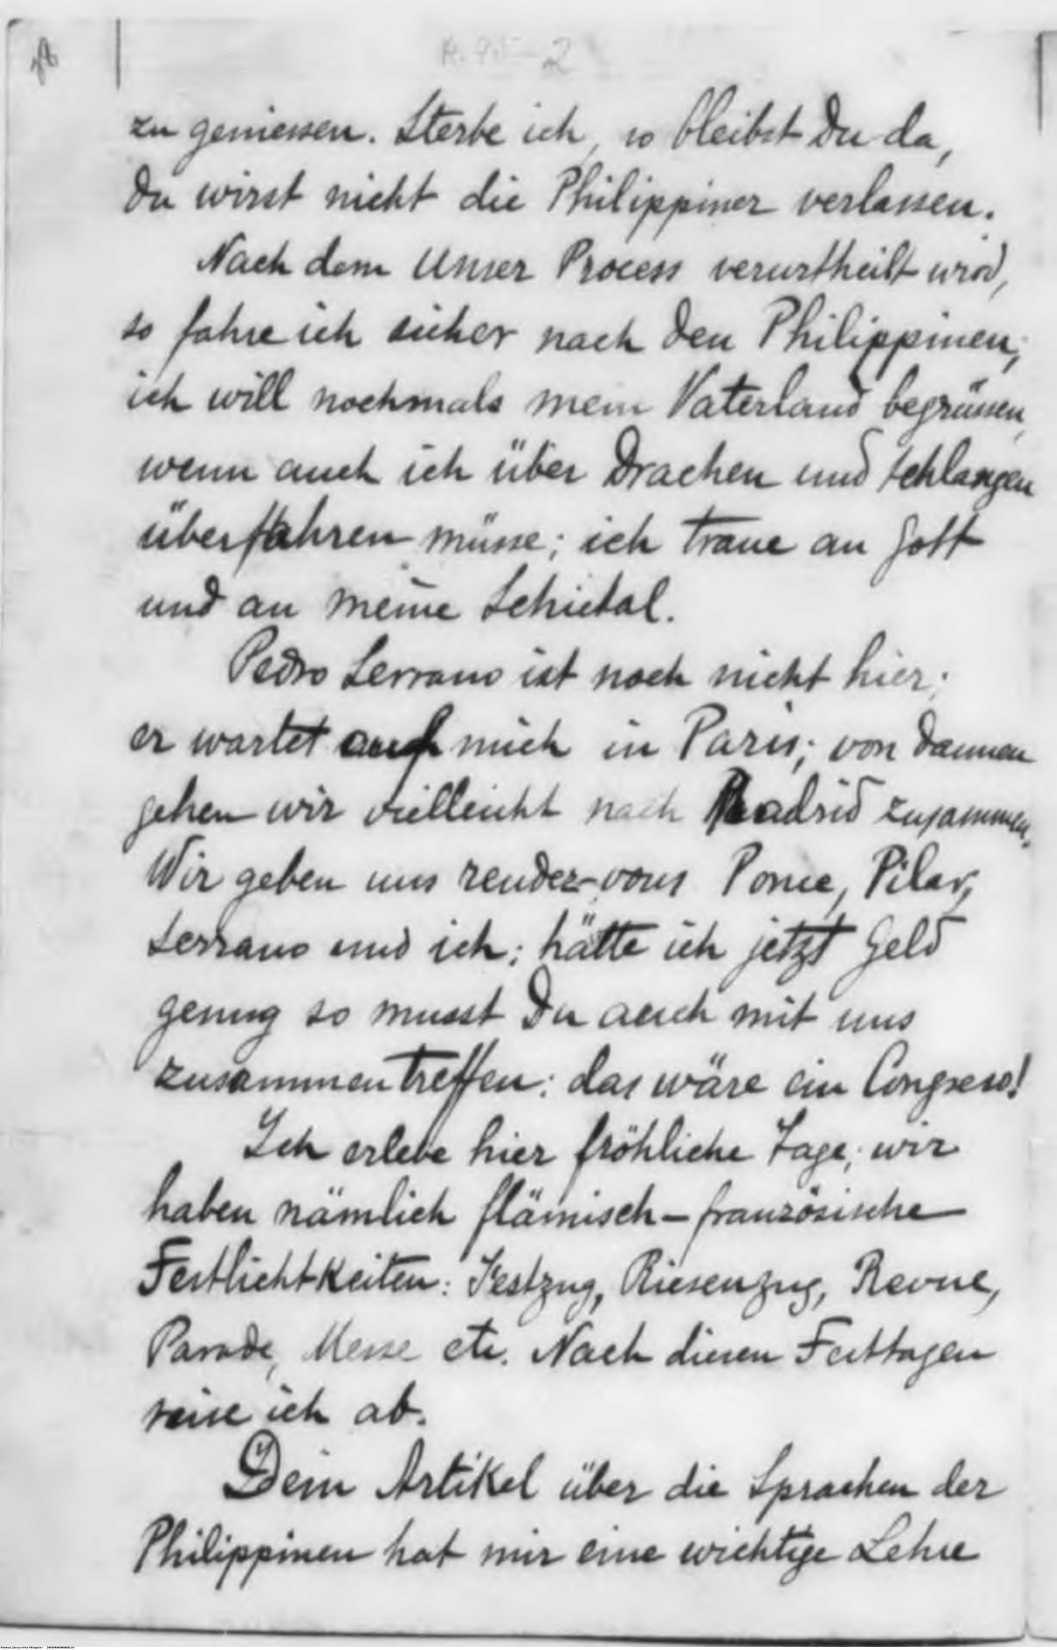 R. 95-2
zu geniessen. Sterbe ich, so bleibst Du da,
Du wirst nicht die Philippiner verlassen.
Nach dem Unser Process verurtheilt wird,
so fahre ich sicher nach den Philippinen;
ich will nochmals mein Vaterland begrüssen,
wenn auch ich über Drachen und Schlangen
überfahren müsse; ich traue an Gott
und an meine Schictal.
Pedro Serrano ist noch nicht hier;
er wartet auf mich in Paris; von dannen
gehen wir vielleicht nach Madrid zusammen.
Wir geben uns rendez-vous Ponce, Pilar,
Serrano und ich; hätte ich jetzt Geld
genug so musst Du auch mit uns
zusammentreffen: das wäre ein Congress!
Ich erlebe hier fröhliche Tage; wir
haben nämlich flämisch-französische
Festlichtkeiten: Festzug, Riesenzug, Revue,
Parade, Messe etc. Nach diesen Festtagen
reise ich ab.
Dein Artikel über die Sprachen der
Philippinen hat mir eine wichtige Lehre